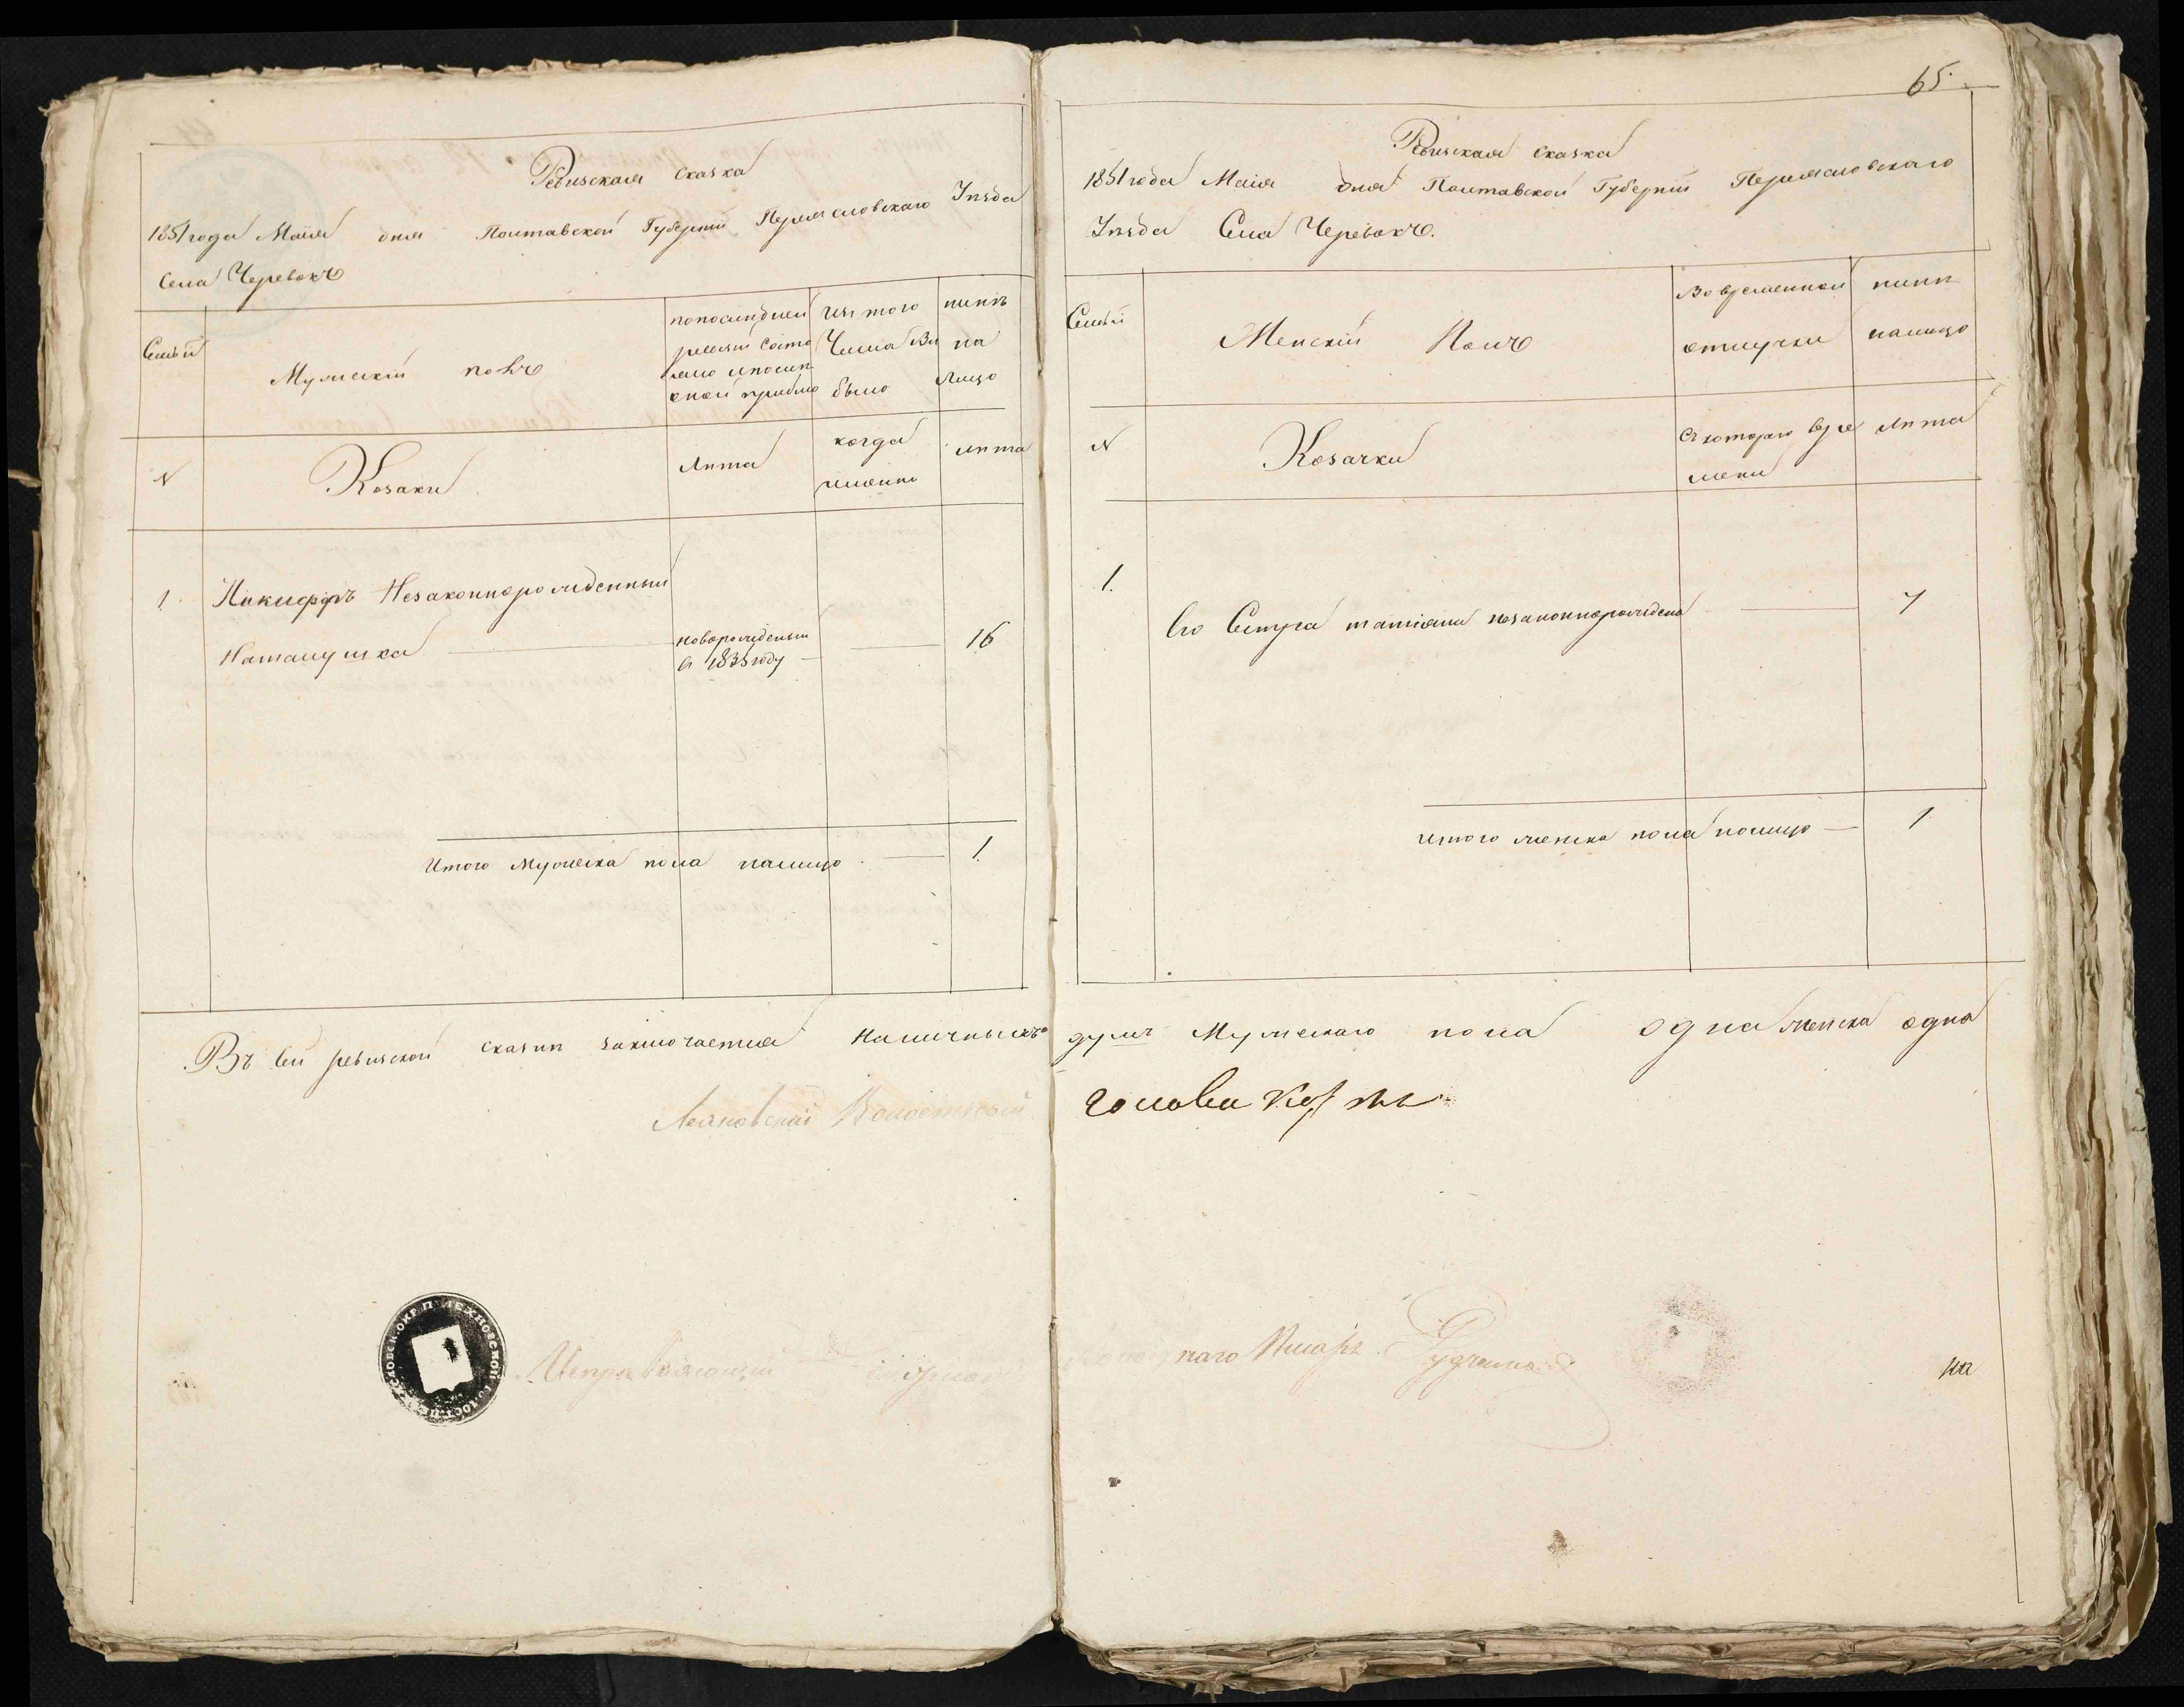 Ревизская сказка
1851 года Маія дня Полтавской Губерніи Переясловскаго Уѣзда
Села Черевокъ
Семьи
Мужескій полъ
попослѣдней
ревизіи состо
яло и послѣ
оной прибыло
изъ того
Числа Вы
было
нынѣ
на
лицо
N
Козаки
Лѣта
когда
именно
лѣта
1. Никифоръ Незаконнорожденный
Наталушка
новорожденный
въ 1835 году
16
Итого Мужеска пола налицо 1
65.
Ревизская сказка
1851 года Маія дня Полтавской Губерніи Переясловскаго
Уѣзда Села Черевокъ.
Семьи
Женскій Полъ
Во временной
отлучки
нынѣ
налицо
N
Козачки
Съ котораго вре
мени
лѣта
1.
Его Сестра татіана незаконнорождена 7
итого женска пола налицо 1
Въ сей ревизской сказкѣ заключается Наличныхъ душъ Мужескаго пола одна женска одна
Волостный голова
Исправляющій наго Писаря
ка